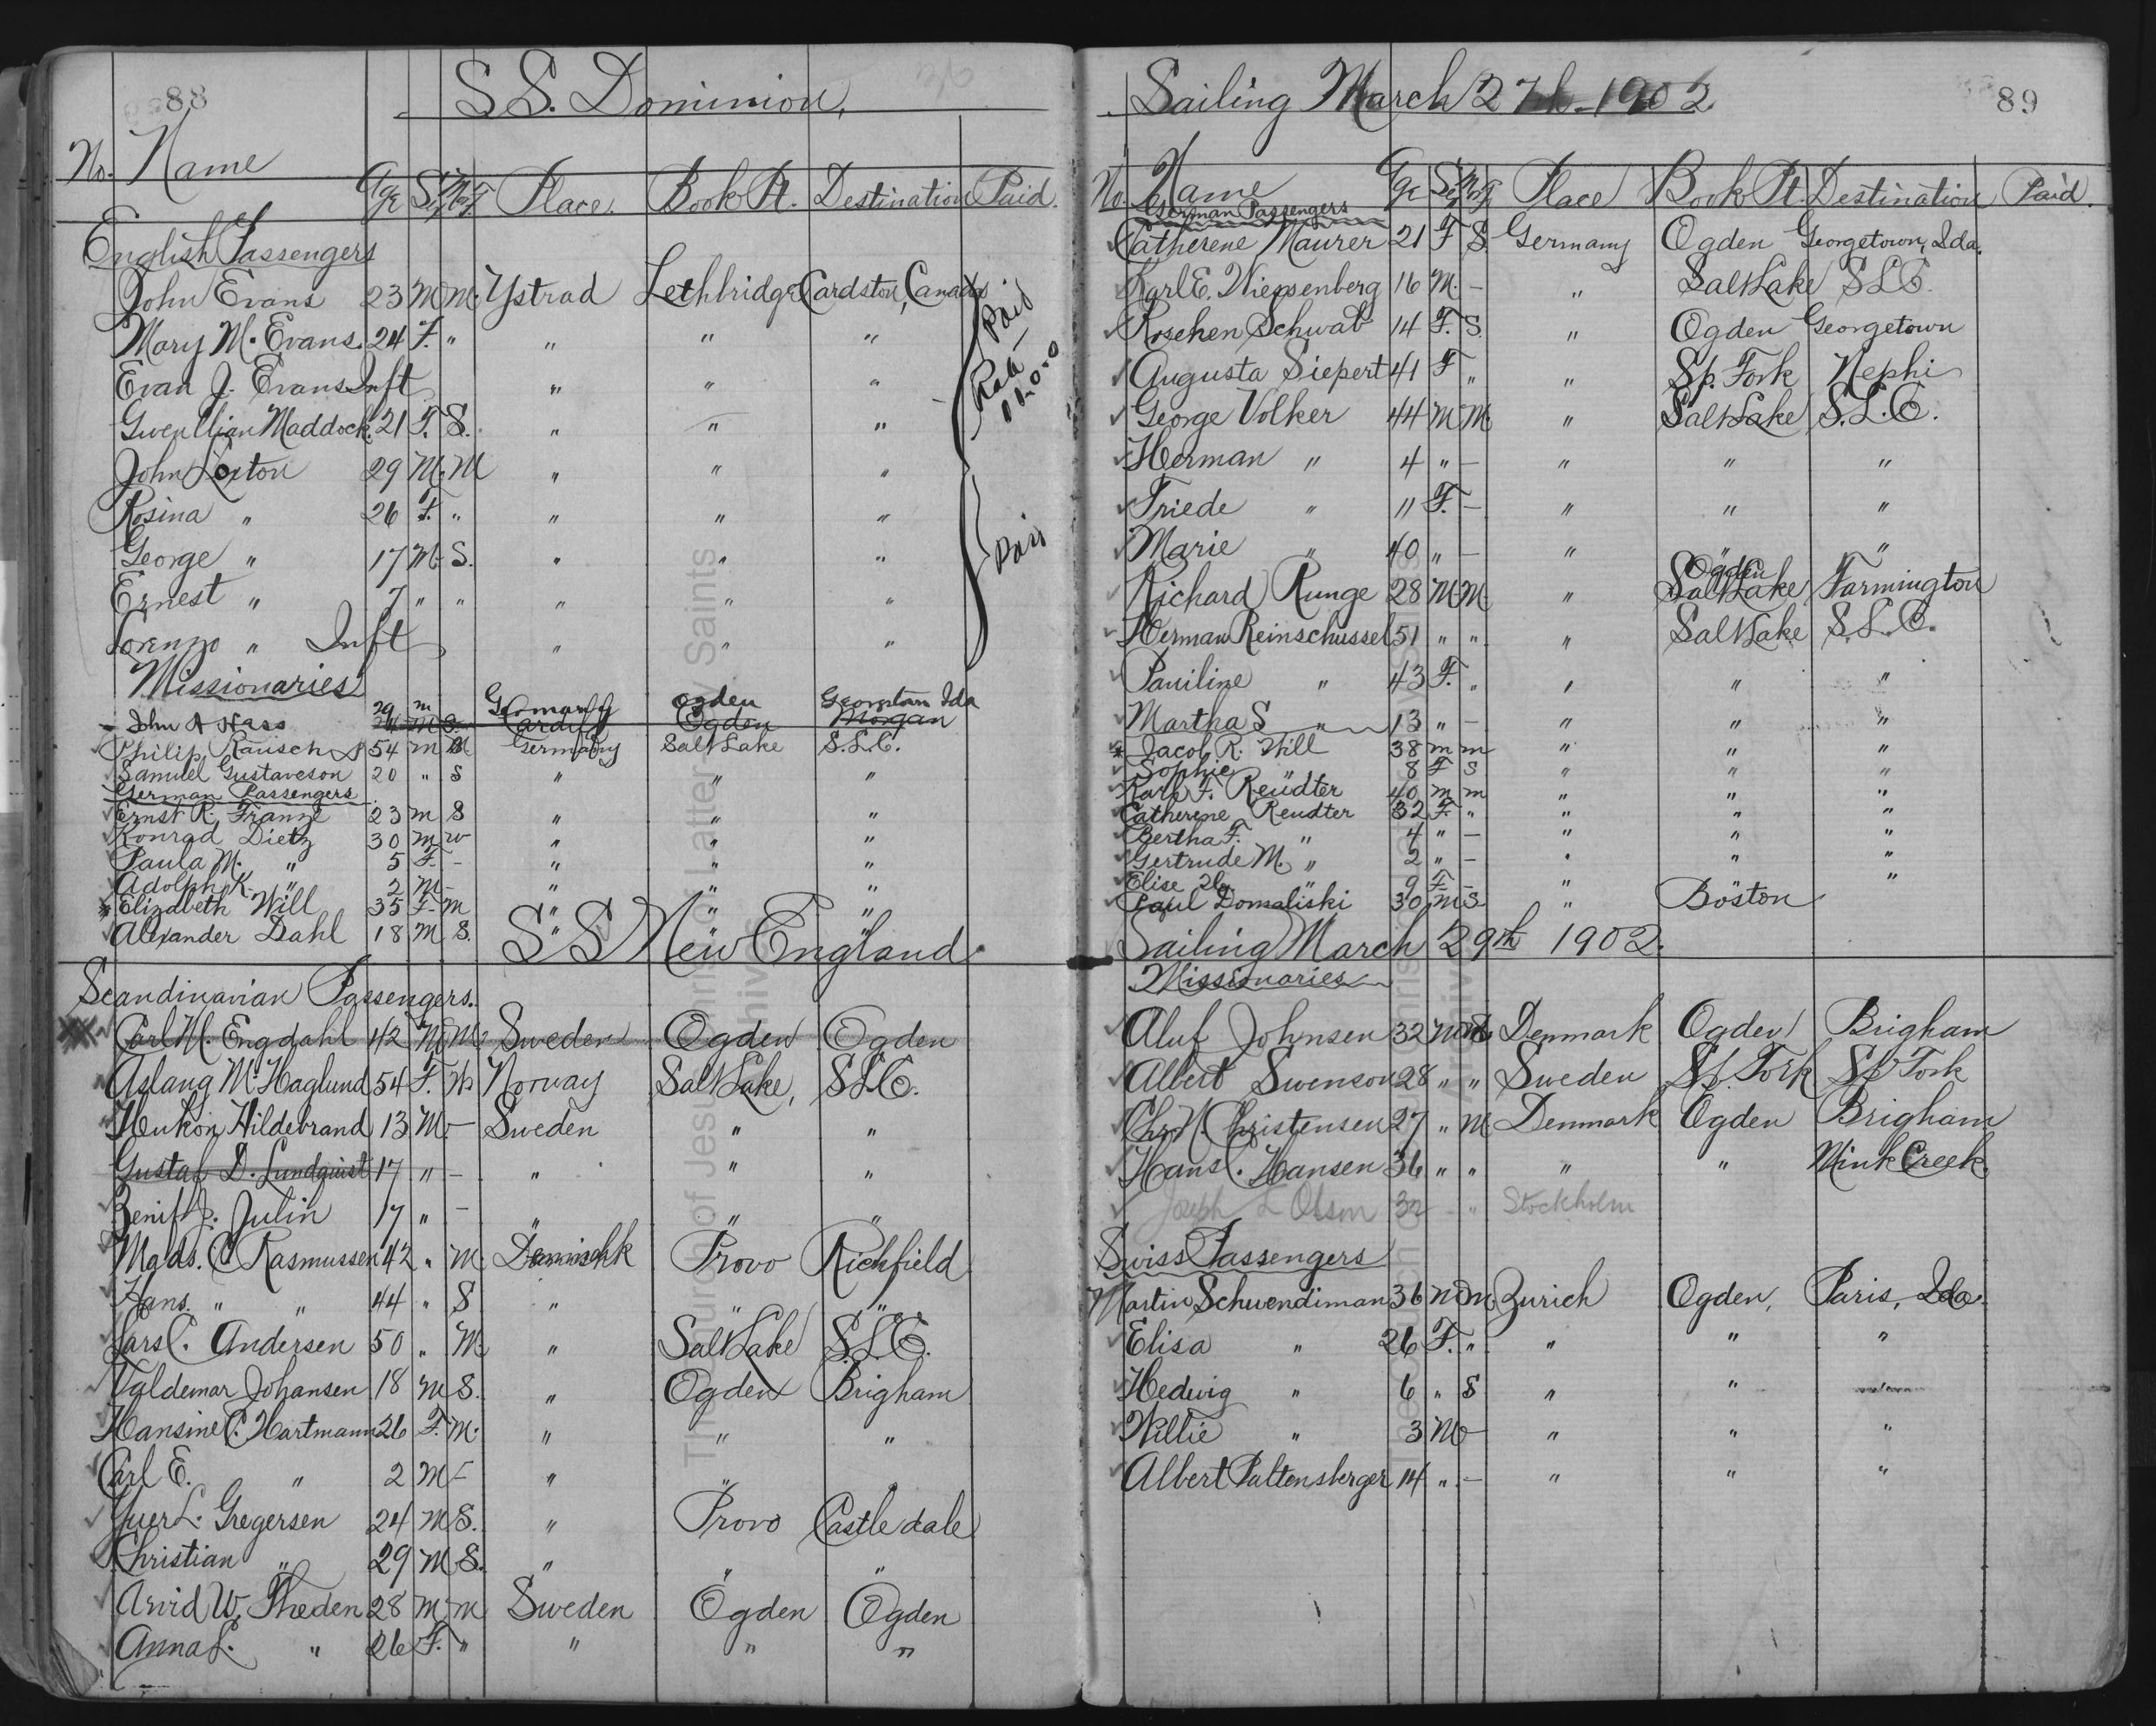 88
S.S. Dominion,
No. Name Age Sex M or S Place. Book Pt. Destination Paid.
English Passengers
John Evans 23 M M. Ystrad Lethbridge Cardston, Canada
Mary M. Evans. 24 F. " " " "
Evan J. Evans Inft " " "
Gwenllian Maddock. 21 F. S. " " "
John Loxton 29 M. M " " "
Rosina " 26 F. " " " "
George " 17 M. S. " " "
Ernest " 7 " " " " "
Lorenzo " Inft " " "
Paid
Paid
Missionaries
John A Hass 29 m Germany Ogden Georgetown Ida
24 M S. Cardiff Ogden Morgan
Philip Rausch 54 m M Germany Salt Lake S.L.C.
Samuel Gustaveson 20 " S " " "
German Passengers
Ernst R. Franze 23 m S " " "
Konrad Dietz 30 m w " " "
Paula M. " 5 F. - " " "
Adolph K. " 2 M - " " "
* Elizabeth Will 35 F. M " " "
Alexander Dahl 18 M S. " " "
S S New England.
Scandinavian Passengers.
Carl M. Engdahl 42 M M. Sweden Ogden Ogden
Aslaug M. Haglund 54 F. W. Norway Salt Lake, S.L.C.
Hukon Hildebrand 13 M - Sweden " "
Gustaf D. Lundquist 17 " - " " "
J. Julin 17 " - " " "
Mads. C Rasmussen 42 " M. Provo Richfield
Hans. " " 44 " S " " "
Lars C. Andersen 50 " M " Salt Lake S.L.C.
Valdemar Johansen 18 M S. " Ogden Brigham
Hansine C. Hartmann 26 F. M. " " "
Carl E. " 2 M - " " "
L. Gregersen 24 M S. " Provo Castle dale
Christian " 29 M S. " " "
Arvid W. Theden 28 M m Sweden Ogden Ogden
Anna L. " 26 F. " " " "
Sailing March 27th 1902
89
No. Name Age Sex M or S Place Book Pt. Destination Paid.
German Passengers
Catherene Maurer 21 F S. Germany Ogden Georgetown, Ida.
Karl E. Wiepsenberg 16 M. - " Salt Lake S.L.C.
Roschen Schwab 14 F. S. " Ogden Georgetown
Augusta Siepert 41 F " " Sp. Fork Nephi
George Volker 44 M M. " Salt Lake S.L.C.
Herman " 4 " - " " "
Friede " 11 F. - " " "
Marie " 40 " - " " "
Ogden
Richard Runge 28 M. M. " Salt Lake Farmington
Herman Reinschussel 51 " " " Salt Lake S.L.C.
Pauiline " 43 F. " " " "
Martha S " 13 " - " " "
* Jacob R. Will 38 m m " " "
Sophie 8 F S " " "
Karl F. Reudter 40 m m " " "
Catherene Reudter 32 F. " " " "
Bertha F. " 4 " - " " "
Gertrude M. " 2 " - " " "
Elise 9 F - " " "
Paul Domaliski 30 m S " Boston
Sailing March 29th 1902.
Missionaries
Aluf Johnsen 32 M Denmark Ogden Brigham
Albert Swenson 28 " " Sweden Sp. Fork Sp Fork
Chr. N. Christensen 27 " M Denmark Ogden Brigham
Hans C. Hansen 36 " " " " Mink Creek.
Joseph L Olson 32 " Stockholm
Swiss Passengers
Martin Schwendiman 36 M M. Zurich Ogden, Paris, Ida.
Elisa " 26 F. " " " "
Hedwig " 6 " S " "
Willie " 3 M - " " "
Albert Paltensberger 14 " - " " "